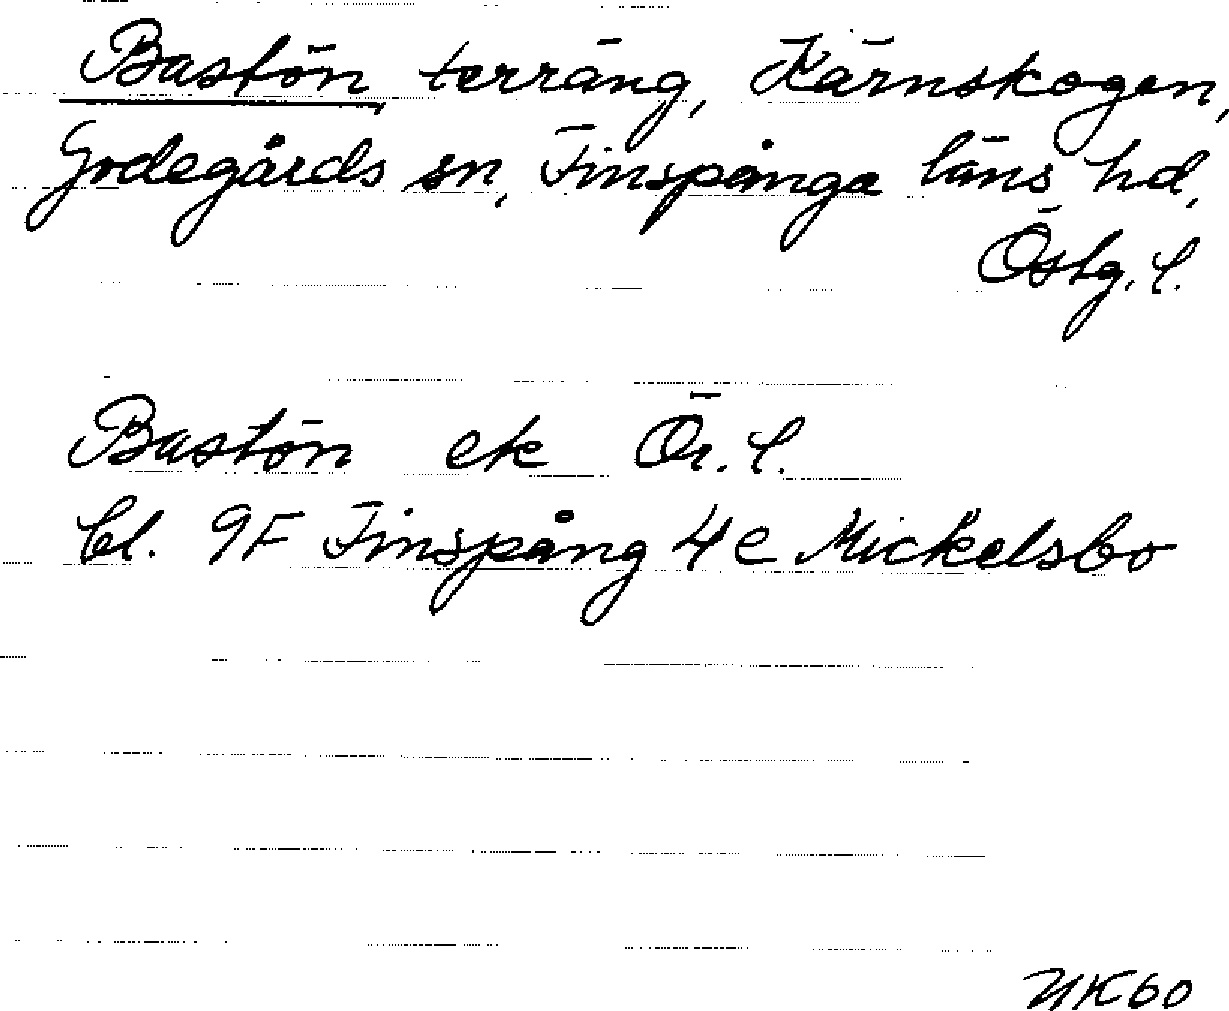 Bastön terräng, Kärnskogen,
Godegårds sn, Finspånga läns hd,
Östg. l.
Bastön ek Ör. l.
bl. 9F Finspång 4 e Mickelsbo
NK60